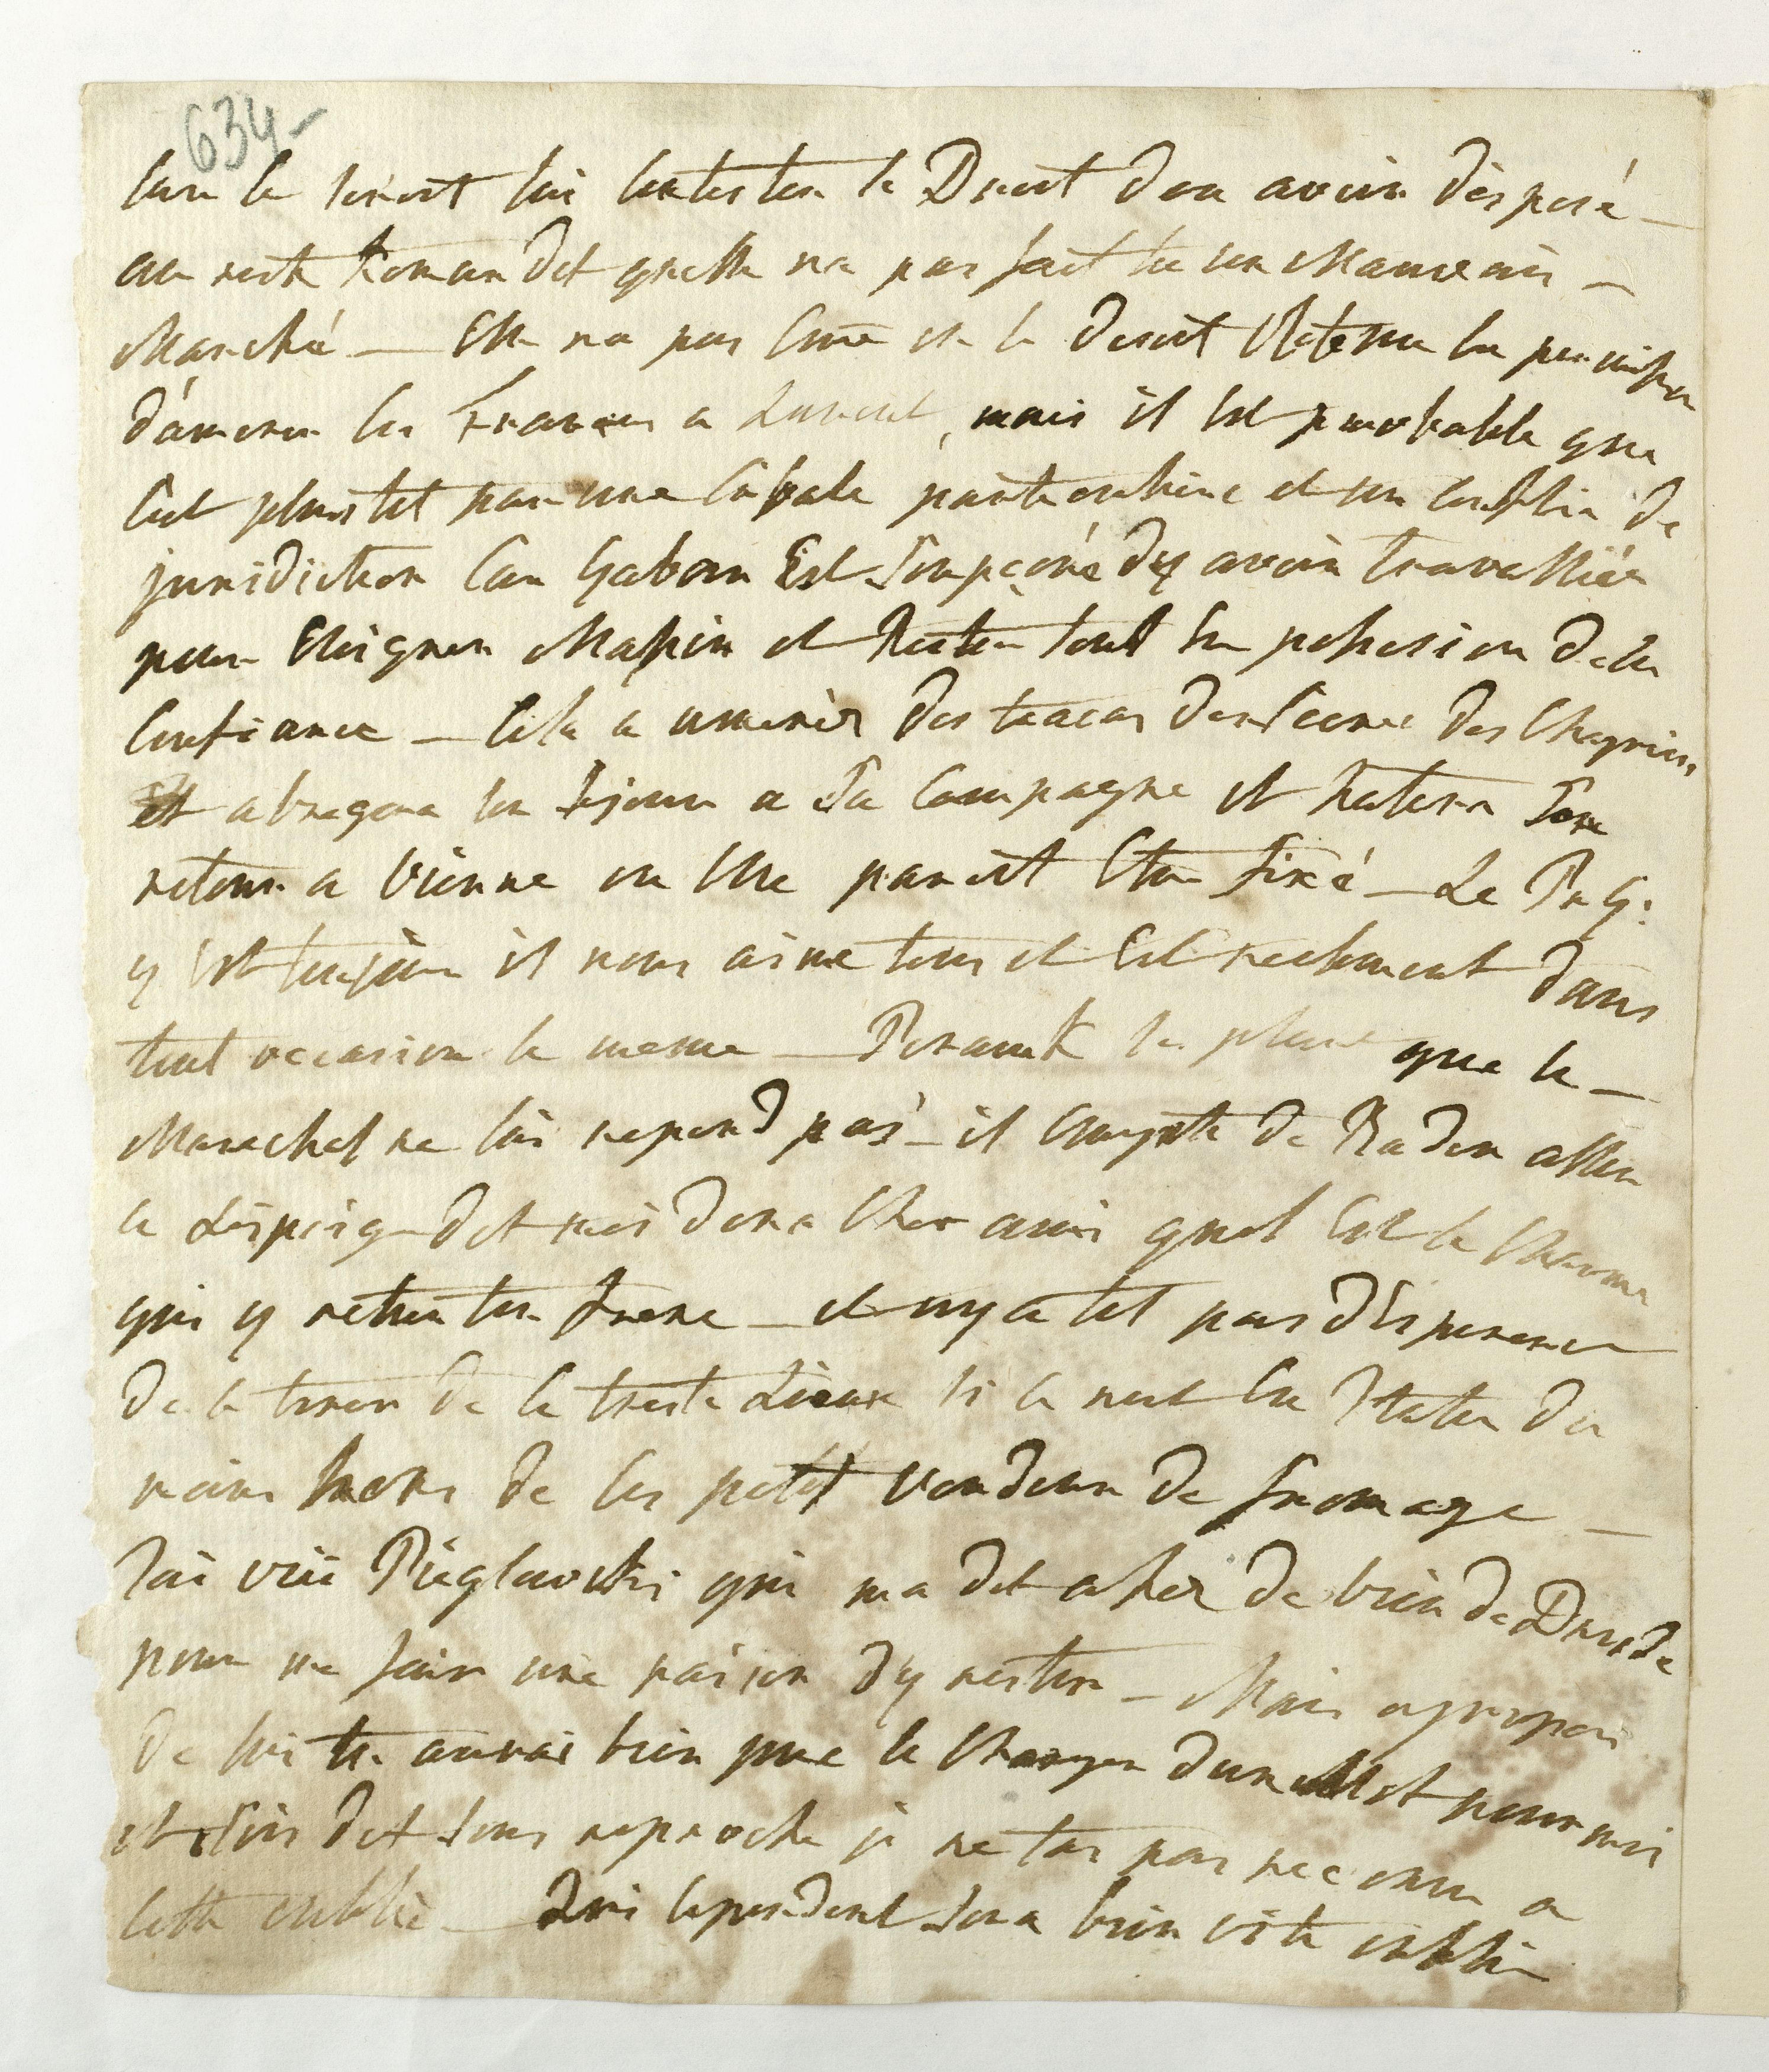 634
car ce seroit lui contester le Droit d'en avoir disposé —
au reste Roman dit quelle na pas fait la un Mauvais —
Marché — Elle na pas come on le disoit obtenu la permission
d'amener les Francois a , mais il est probable que
cest plustot par une cabale particuliere et un conflin de
juridiction car Gabon Est soupçoné dy avoir travallier
pour Eloigner Massin et Rester seul en possesion de la
Confiance — Cela a amenér des tracas des scenes des Chagrins
Et abregera son sejour a sa Campagne et hatera son
retour a vienne ou Elle paroit Etre fixé — Le Pr G:
y est toujour il nous aime tous et Est reelement dans
tout occasion le meme — se plaint que le —
Marechal ne lui repond pas — il compte de Baden aller
a Leipsig — dit moi donc Cher ami quel Est le Charme
qui y retien ton frere — et ny a til pas d'Esperence
de le tirer de ce triste Lieux si ce nest En Etater du
moins hors de ces petit vendeur de fromage —
Jai vüe Piéglowski qui ma dit assez de bien de Dresde
pour me faire une raison d'y rester — Mais apropos
de lui tu aurai bien pue le Charger d'un Mot pour moi
et soit dit sans reproche je ne tai pas reconu a
cette oublie — Qui cependent sera bien vite oublie